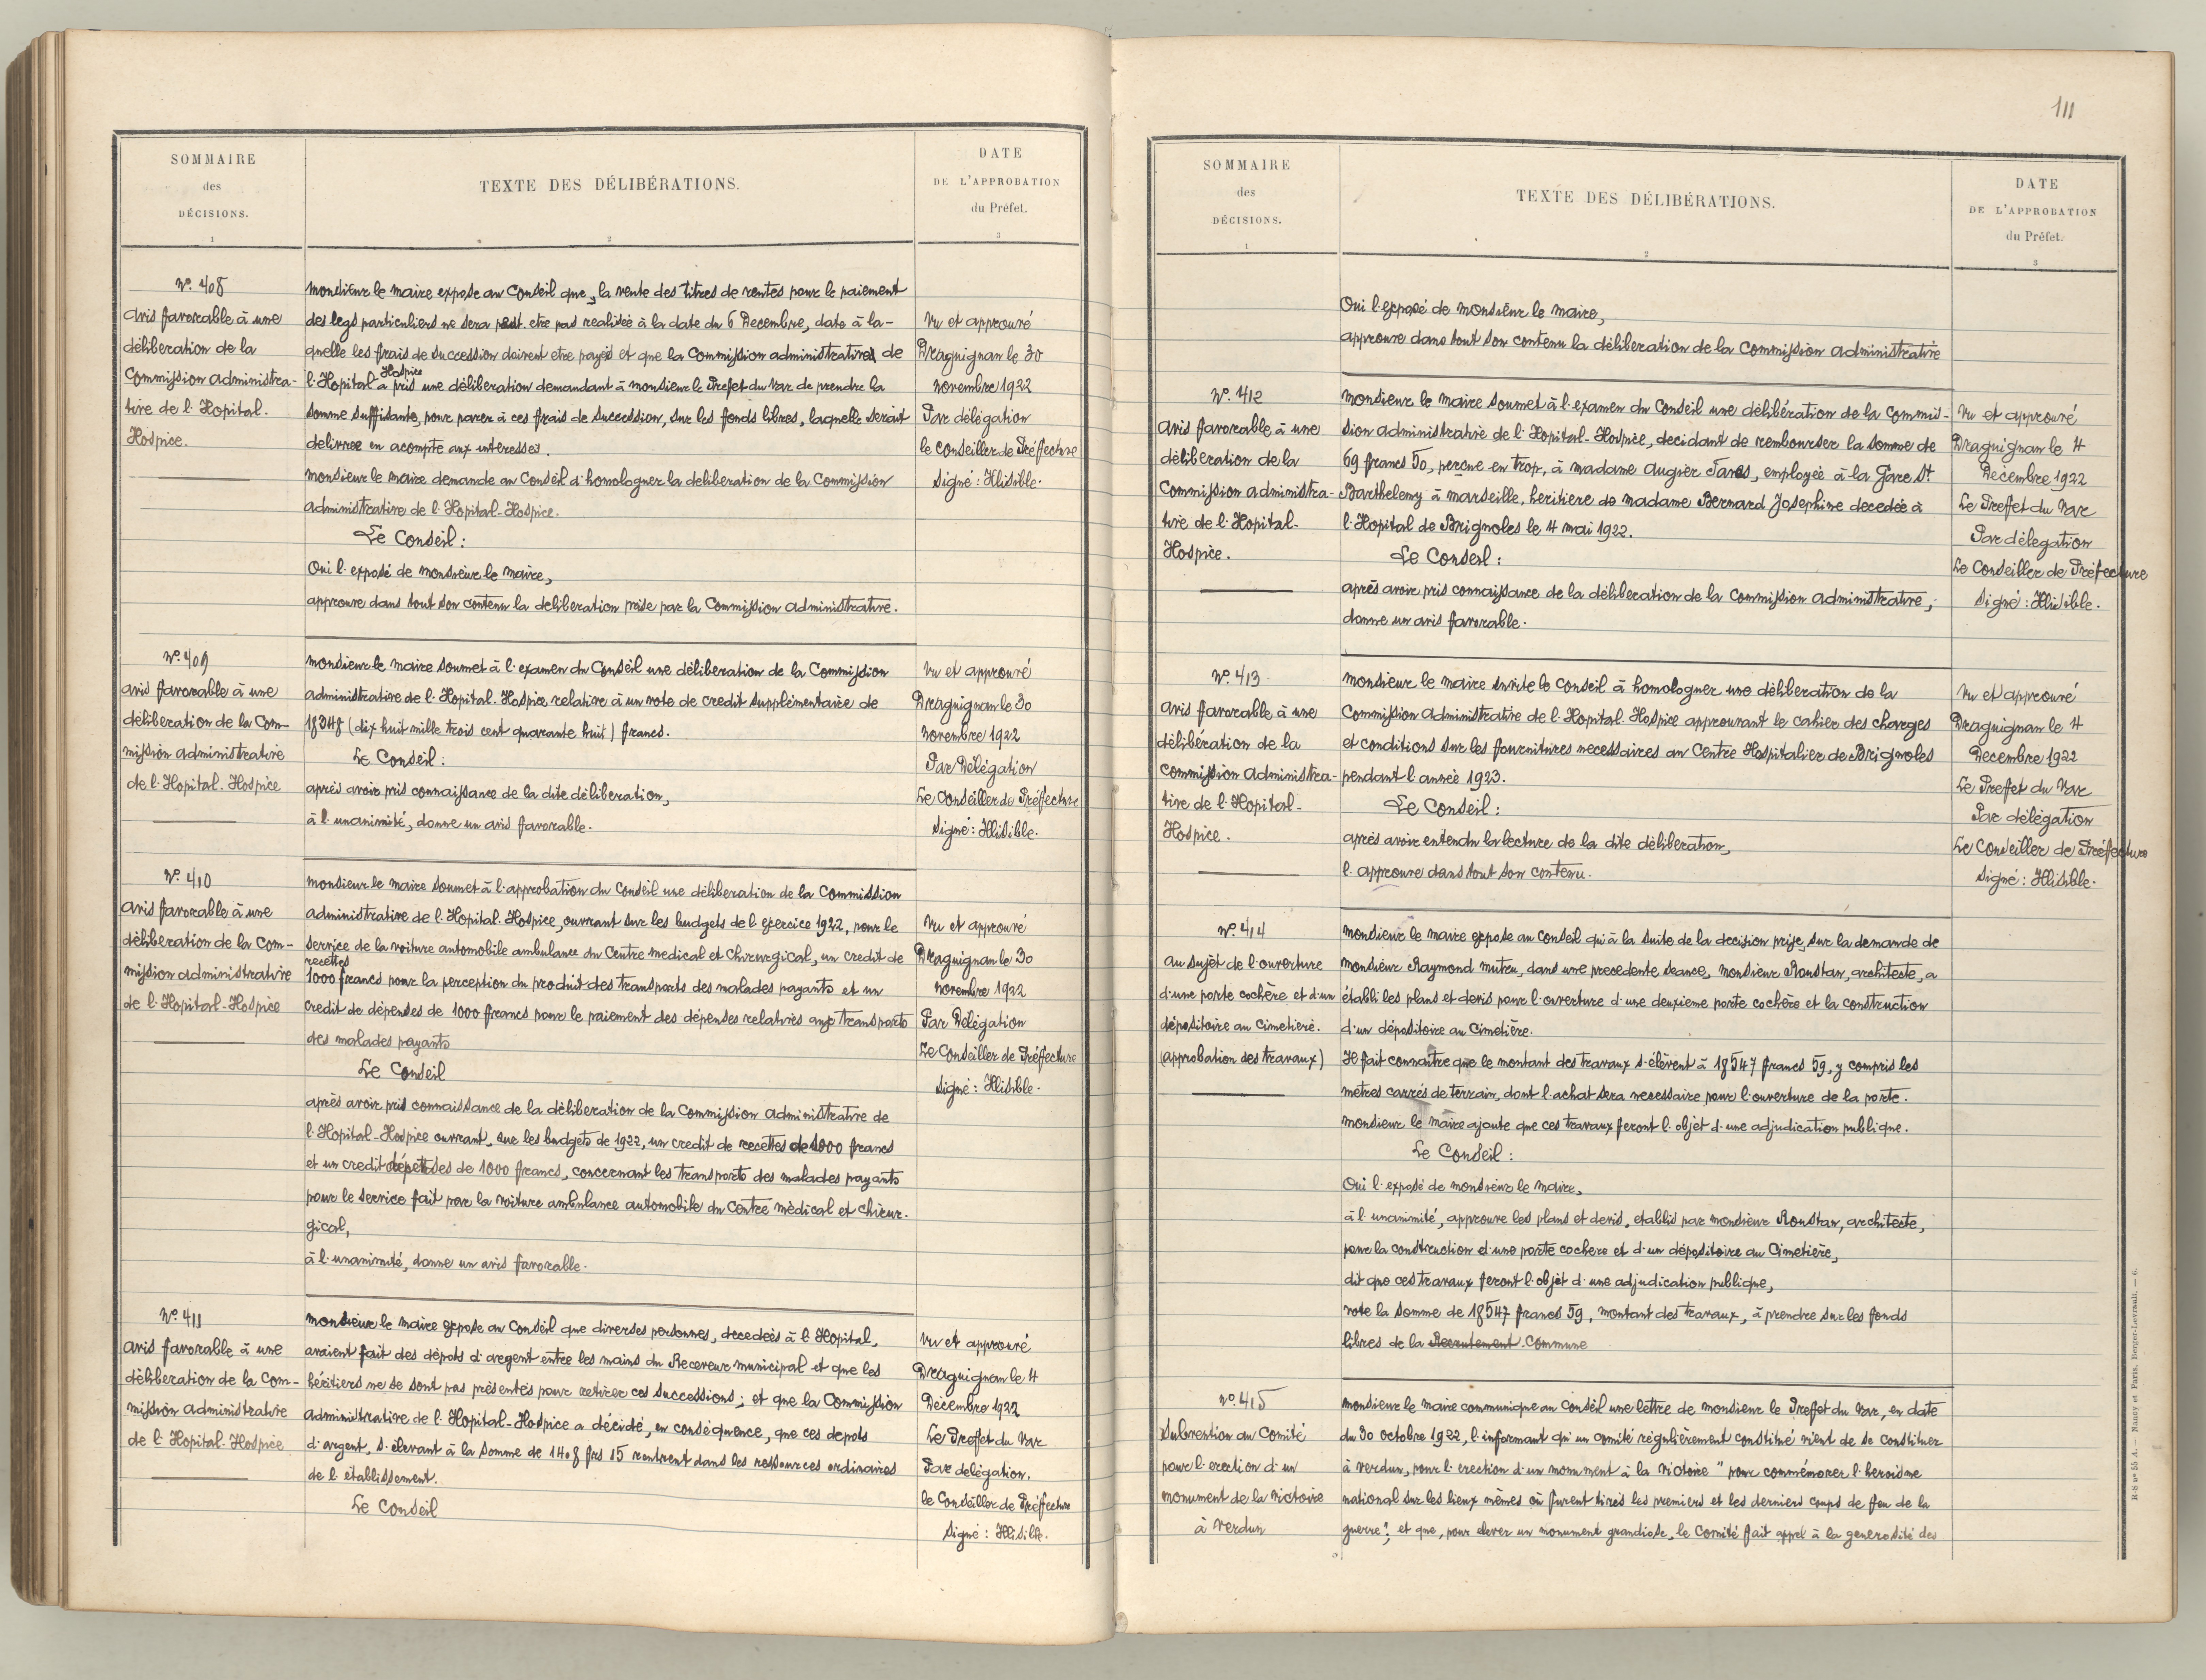 SOMMAIRE
des
DÉCISIONS.
1
TEXTE DES DÉLIBÉRATIONS.
2
DATE
DE L'APPROBATION
du Préfet.
3
N° 408
Avis favorable à une
délibération de la
Commission administra-
tive de l'Hopital.
Hospice.
Monsieur le Maire expose au Conseil que, la vente des titres de rentes pour le paiement
des legs particuliers ne sera peut etre pas realisée à la date du 6 Decembre, date à la-
quelle les frais de succession doivent etre payés et que la Commission administrative de
Hospice
l'Hopital a pris une délibération demandant à monsieur le Prefet du Var de prendre la
somme suffisante, pour parer à ces frais de succession, sur les fonds libres, laquelle serait
delivree en acompte aux interessés.
Monsieur le Maire demande au Conseil d'homologuer la deliberation de la Commission
administrative de l'Hopital-Hospice.
Le Conseil :
Oui l'exposé de monsieur le maire,
approuve dans tout son contenu la deliberation prise par la Commission administrative.
Vu et approuvé
Draguignan le 30
Novembre 1922
Par délégation
le Conseiller de Préfecture
Signé : Illisible.
N° 409
Avis favorable à une
délibération de la Com-
mission administrative
de l'Hopital. Hospice
Monsieur le Maire soumet à l'examen du Conseil une délibération de la Commission
administrative de l'Hopital. Hospice relative à un vote de credit supplémentaire de
18348 (dix huit mille trois cent quarante huit) francs.
Le Conseil :
après avoir pris connaissance de la dite délibération,
à l'unanimité, donne un avis favorable.
Vu et approuvé
Draguignan le 30
Novembre 1922
Par Délégation
Le Conseiller de Préfecture
Signé : Illisible.
N° 410
Avis favorable à une
délibération de la Com-
mission administrative
de l'Hopital-Hospice
Monsieur le Maire soumet à l'approbation du Conseil une déliberation de la Commission
administrative de l'Hopital. Hospice, ouvrant sur les budgets de l'exercice 1922, pour le
service de la voiture automobile ambulance du Centre medical et Chirurgical, un credit de
recettes
1000 francs pour la perception du produit des transports des malades payants et un
credit de dépenses de 1000 francs pour le paiement des dépenses relatives aux transports
des malades payants
Le Conseil
après avoir pris connaissance de la délibération de la Commission administrative de
l'Hopital-Hospice ouvrant, sur les budgets de 1922, un credit de recettes de 1000 francs
et un credit dépenses de 1000 francs, concernant les transports des malades payants
pour le service fait par la voiture ambulance automobile du Centre médical et chirur-
gical,
à l'unanimité, donne un avis favorable.
Vu et approuvé
Draguignan le 30
Novembre 1922
Par Délégation
Le Conseiller de Préfecture
Signé : Illisible.
N° 411
Avis favorable à une
délibération de la Com-
mission administrative
de l'Hopital. Hospice
Monsieur le Maire expose au Conseil que diverses personnes, decedées à l'Hopital,
avaient fait des dépots d'argent entre les mains du Receveur municipal et que les
héritiers ne se sont pas présentés pour retirer ces successions ; et que la Commission
administrative de l'Hopital-Hospice a décidé, en conséquence, que ces depots
d'argent, s'élevant à la somme de 1408 frs 15 rentrent dans les ressources ordinaires
de l'établissement.
Le Conseil
Vu et approuvé
Draguignan le 4
Décembre 1922
Le Preffet du Var
Par delégation.
le Conseiller de Préffecture
Signé : Illisible.
111
SOMMAIRE
des
DÉCISIONS.
1
TEXTE DES DÉLIBÉRATIONS.
2
DATE
DE L'APPROBATION
du Préfet.
3
Oui l'exposé de monsieur le maire,
approuve dans tout son contenu la déliberation de la Commission administrative
N° 412
Avis favorable à une
déliberation de la
Commission administra-
tive de l'Hopital-
Hospice.
Monsieur le maire soumet à l'examen du Conseil une délibération de la Commis-
sion administrative de l'Hopital-Hospice, decidant de rembourser la somme de
69 francs 50, percue en trop, à madame Augier Fanes, employée à la Gare St
Barthelemy à Marseille, heritiere de madame Bernard Josephine decedée à
l'Hopital de Brignoles le 4 mai 1922.
Le Conseil :
après avoir pris connaissance de la déliberation de la Commission administrative,
donne un avis favorable.
Vu et approuvé
Draguignan le 4
Decembre 1922
Le Preffet du Var
Par délegation
Le Conseiller de Préfecture
Signé : Illisible.
N° 413
Avis favorable à une
délibération de la
Commission administra-
tive de l'Hopital-
Hospice.
Monsieur le maire invite le Conseil à homologuer une déliberation de la
Commission administrative de l'Hopital. Hospice approuvant le cahier des charges
et conditions sur les fournitures necessaires au Centre Hospitalier de Brignoles
pendant l'année 1923.
Le Conseil :
après avoir entendu la lecture de la dite délibération,
l'approuve dans tout son contenu.
Vu et approuvé
Draguignan le 4
Decembre 1922
Le Preffet du Var
Par délégation
Le Conseiller de Préffecture
Signé : Illisible.
N° 414
Au sujet de l'ouverture
d'une porte cochère et d'un
dépositoire au Cimetière.
(approbation des travaux)
Monsieur le maire expose au Conseil qu'à la suite de la decision prise, sur la demande de
Monsieur Raymond Mutru, dans une precedente seance, monsieur Roustan, architecte, a
établi les plans et devis pour l'ouverture d'une deuxieme porte cochère et la construction
d'un dépositoire au Cimetière.
Il fait connaitre que le montant des travaux s'élèvent à 18547 francs 59, y compris les
metres carrés de terrain, dont l'achat sera necessaire pour l'ouverture de la porte.
Monsieur le maire ajoute que ces travaux feront l'objet d'une adjudication publique.
Le Conseil :
Oui l'exposé de monsieur le maire,
à l'unanimité, approuve les plans et devis, etablis par monsieur Roustan, architecte,
pour la construction d'une porte cochere et d'un dépositoire au Cimetière,
dit que ces travaux feront l'objet d'une adjudication publique,
vote la somme de 18547 francs 59, montant des travaux, à prendre sur les fonds
libres de la Recrutement Commune
N° 415
Subvention au Comité
pour l'erection d'un
monument de la Victoire
à Verdun
Monsieur le maire communique au Conseil une lettre de monsieur le Preffet du Var, en date
du 30 octobre 1922, l'informant qu'un comité régulièrement constitué vient de se constituer
à Verdun, pour l'erection d'un monument à la Victoire " pour commémorer l'heroisme
national sur les lieux mêmes où furent tirés les premiers et les derniers coups de feu de la
guerre", et que, pour elever un monument grandiose, le Comité fait appel à la generosité des
R-S N° 55 A. — Nancy et Paris, Berger-Levrault. — 6.